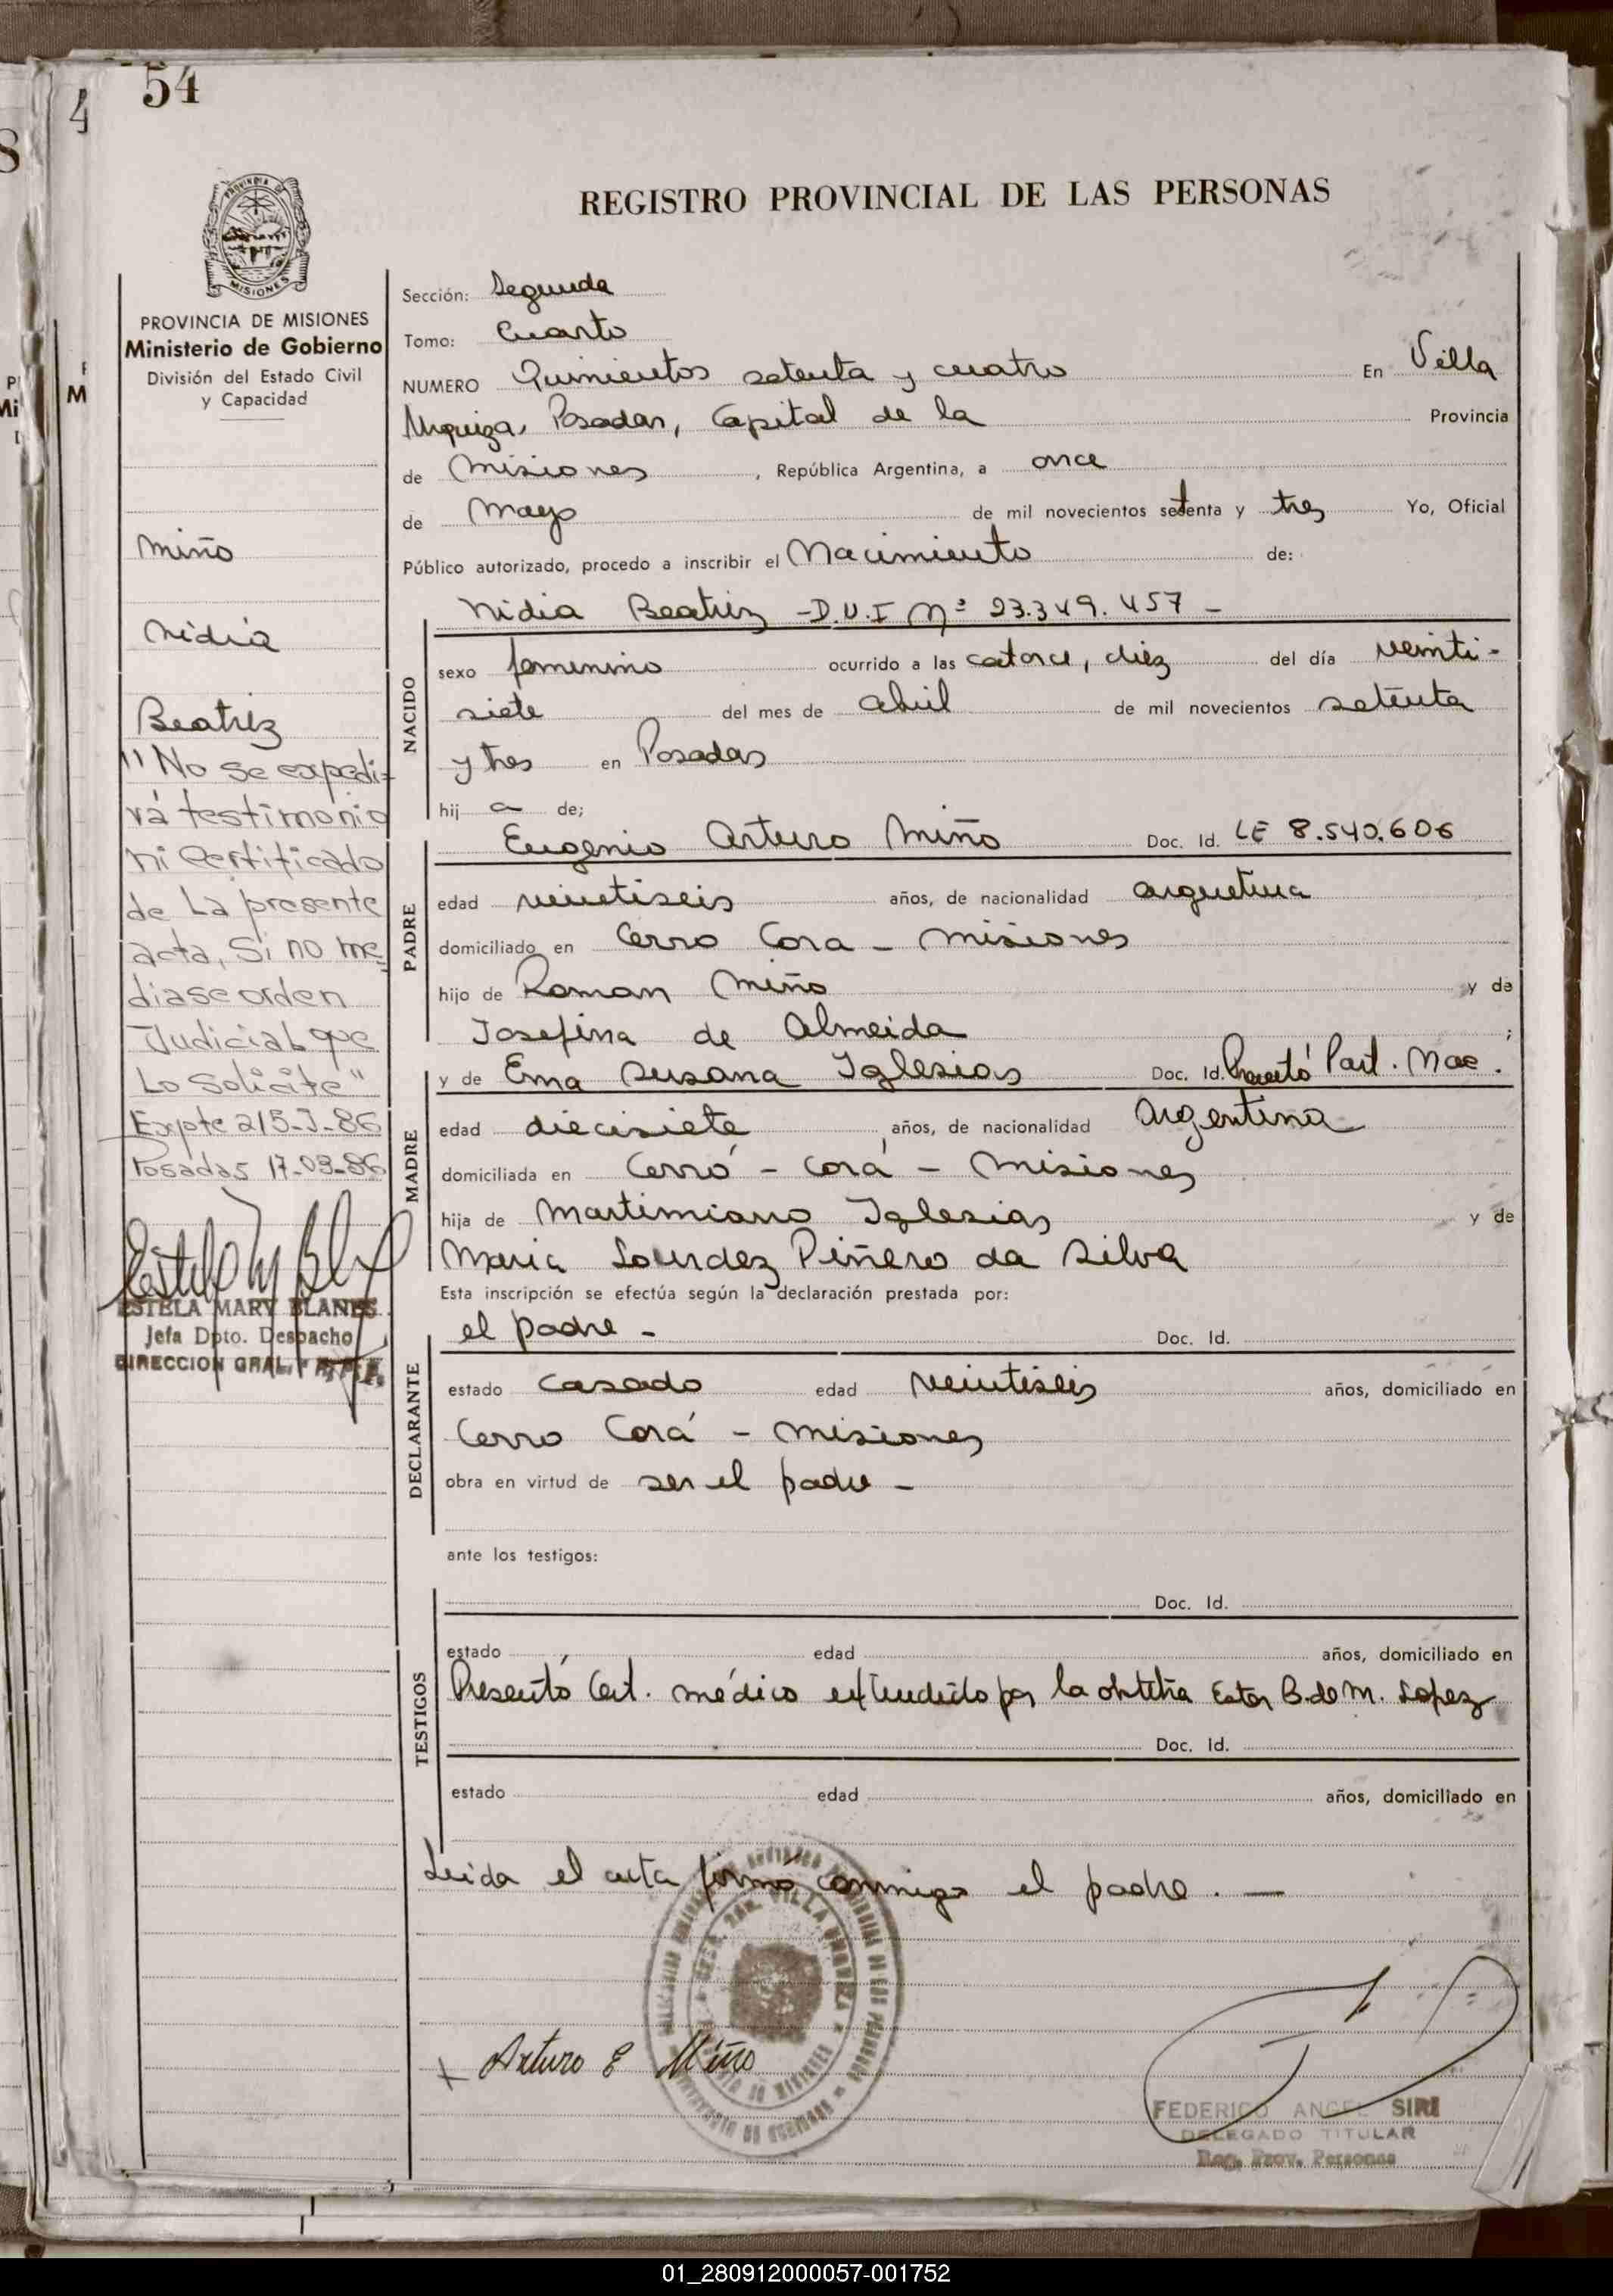 54
4
REGISTRO PROVINCIAL DE LAS PERSONAS
MISIONES
PROVINCIA DE MISIONES
Ministerio de Gobierno
División del Estado Civil
y Capacidad
Miño
Nidia
Beatriz
"No se expedi-
rá testimonio
ni Certificado
de La presente
acta, Si no me
diase orden
Judicial que
Lo Solicite"
Expte 215-J-86
Posadas 17-03-86
ESTELA MARY BLANES
Jefa Dpto. Despacho
DIRECCION GRAL.
Sección: Segunda
Tomo: Cuarto
NUMERO Quinientos setenta y cuatro En Villa
Urquiza, Posadas, Capital de la Provincia
de Misiones, República Argentina, a once
de Mayo de mil novecientos setenta y tres Yo, Oficial
Público autorizado, procedo a inscribir el Nacimiento de:
Nidia Beatriz - D.U.I Nº 23.349.457 -
NACIDO
sexo femenino ocurrido a las catorce, diez del día veinti-
siete del mes de abril de mil novecientos setenta
y tres en Posadas
hij a de;
PADRE
Eugenio Arturo Miño Doc. Id. LE 8.540.606
edad veintiseis años, de nacionalidad argentina
domiciliado en Cerro Cora - Misiones
hijo de Roman Miño y de
Josefina de Almeida ;
MADRE
y de Ema Susana Iglesias Doc. Id. Presentó Part. Nac.
edad diecisiete años, de nacionalidad Argentina
domiciliada en Cerró - Corá - Misiones
hija de Martimiano Iglesias y de
Maria Lourdez Piñero da Silva
Esta inscripción se efectúa según la declaración prestada por:
DECLARANTE
el padre - Doc. Id.
estado casado edad veintiseis años, domiciliado en
Cerro Corá - Misiones
obra en virtud de ser el padre -
ante los testigos:
TESTIGOS
Doc. Id.
estado edad años, domiciliado en
Presentó Cert. médico extendido por la obstetra Ester B. de M. Lopez
Doc. Id.
estado edad años, domiciliado en
Leida el acta firmó conmigo el padre. -
Arturo E Miño
FEDERICO ANGEL SIRI
DELEGADO TITULAR
Reg. Prov. Personas
01_280912000057-001752